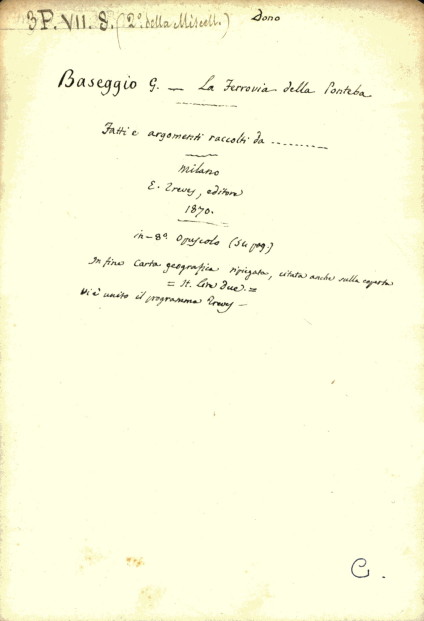 3P. VII. 8. (2º. della Miscell.) Dono
Baseggio G. — La Ferrovia della Ponteba
Fatti e argomenti raccolti da ..........
Milano
E. Treves, editore
1870.
in-8º Opuscolo (54 pag.)
In fine Carta geografica ripiegata, citata anche sulla coperta
= It. Lire Due. =
Vi è unito il programma Treves —
C.